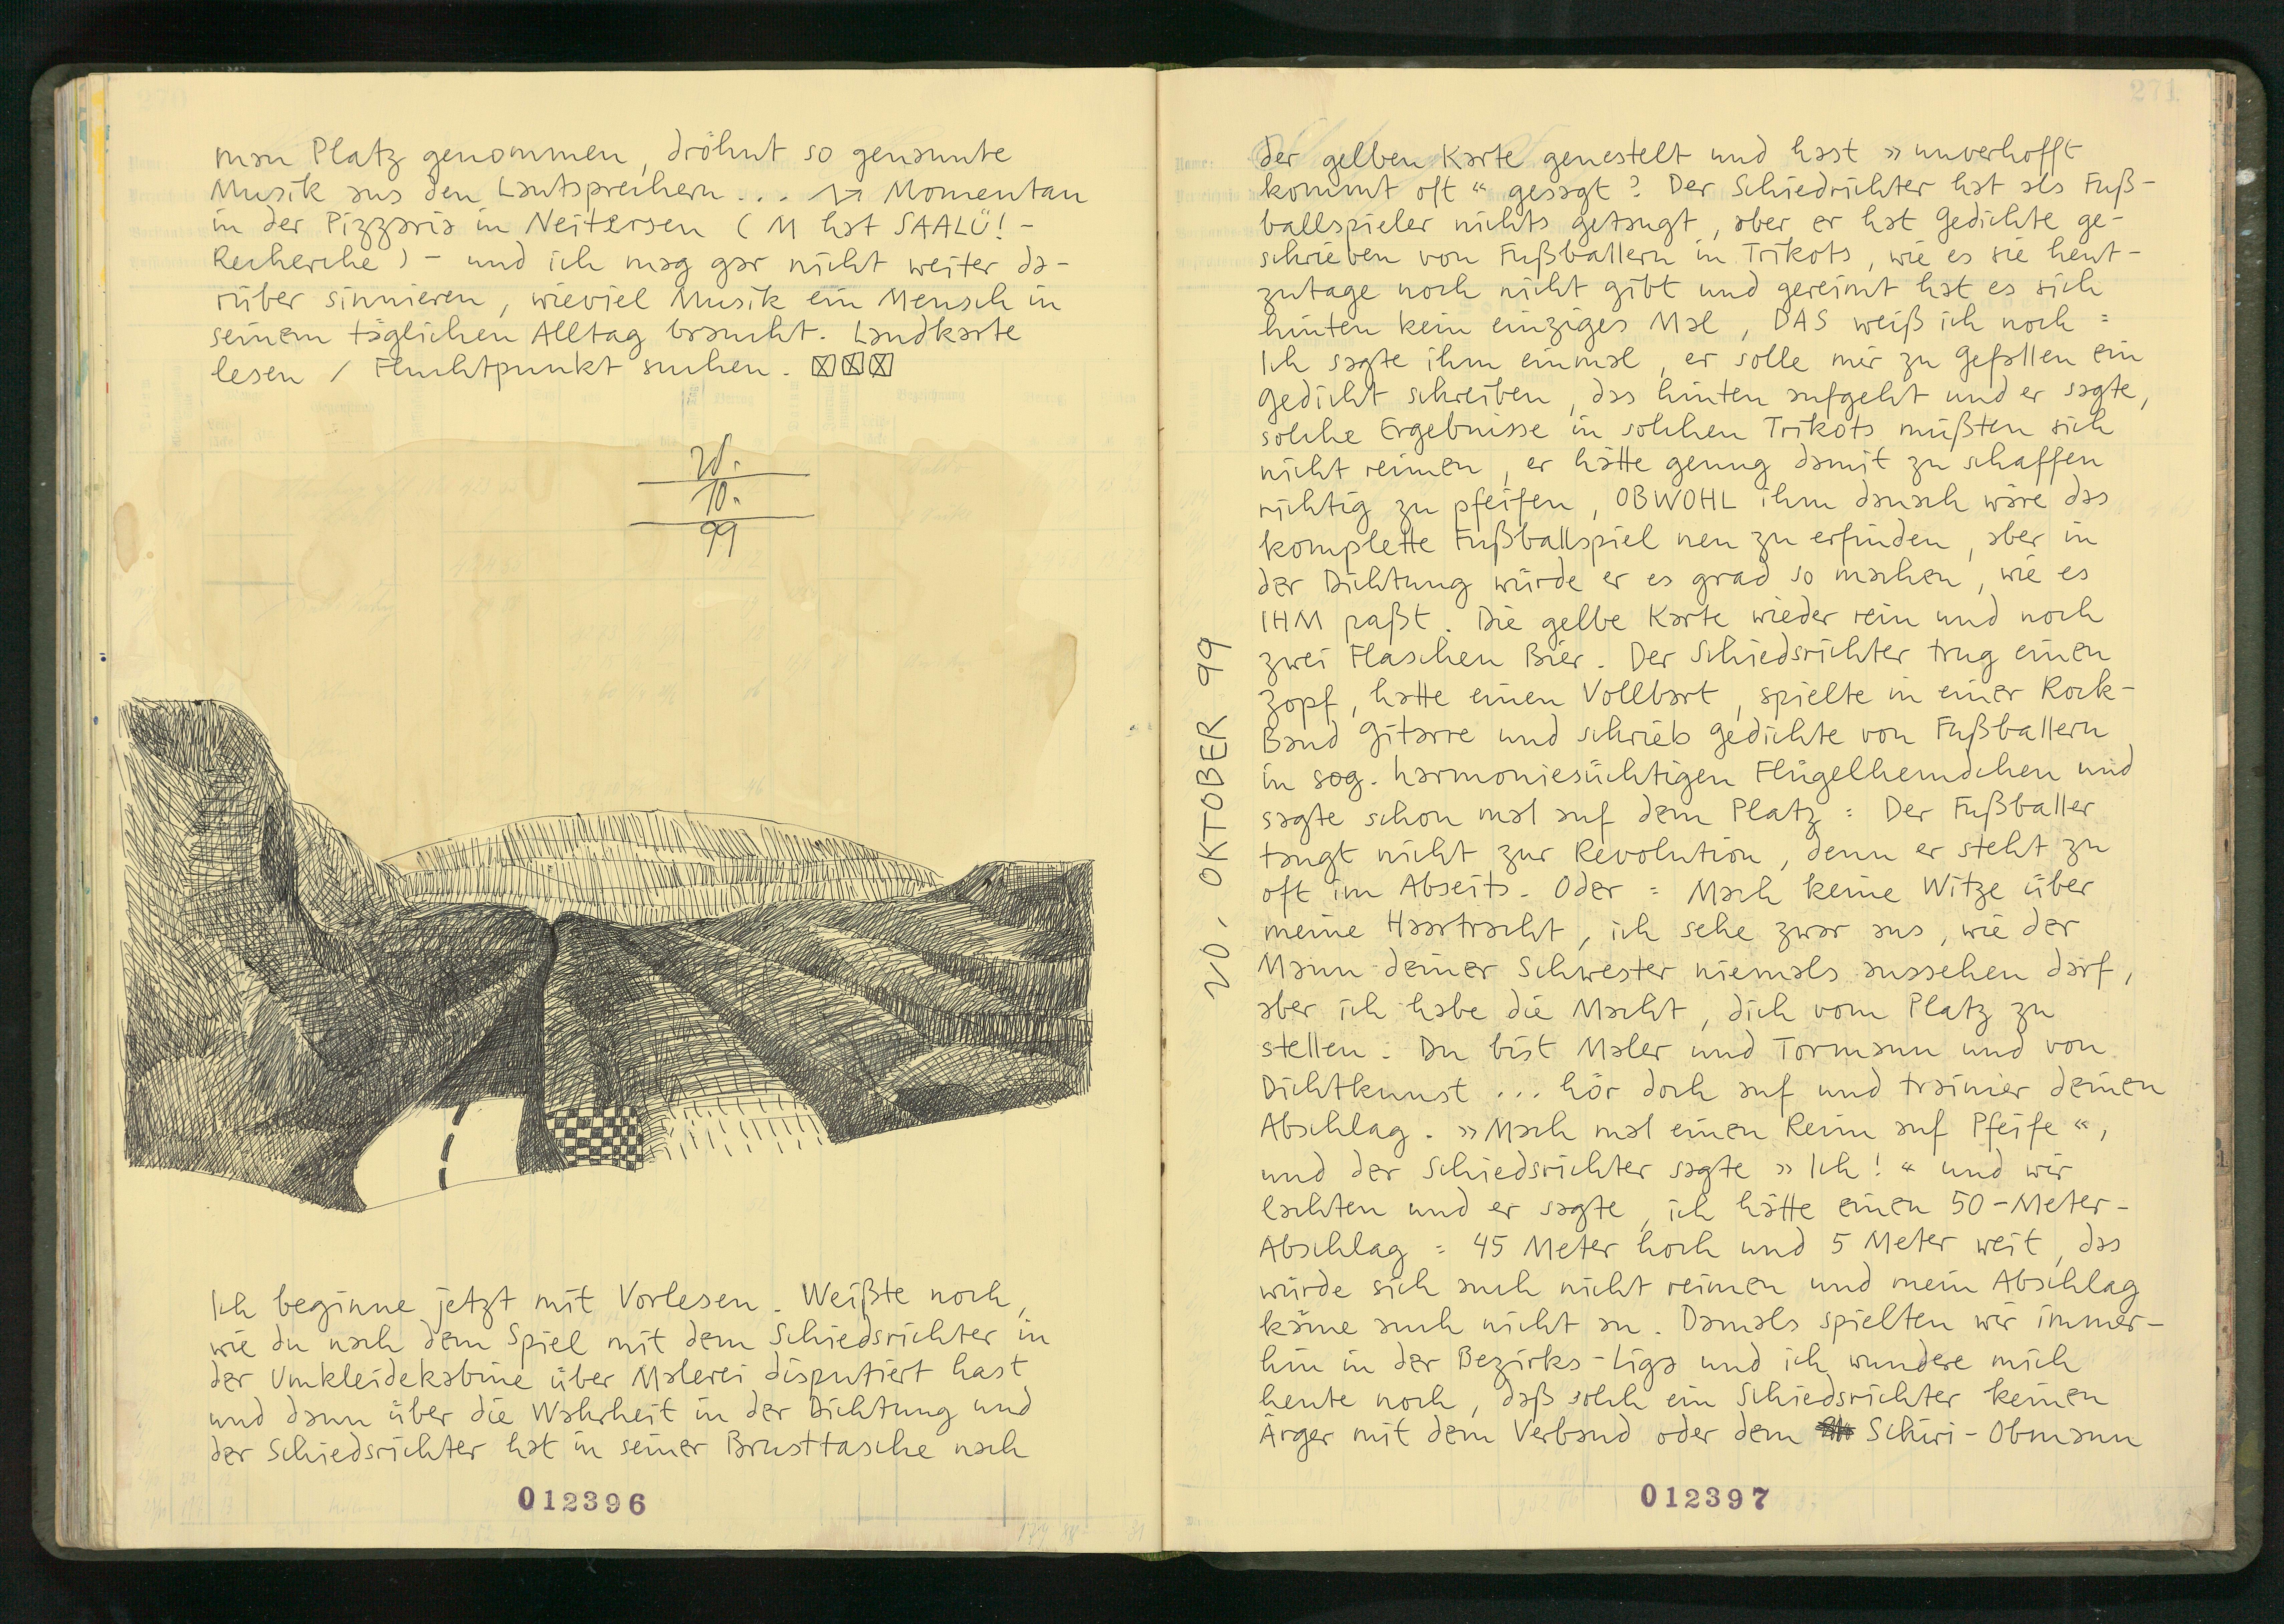 man Platz genommen, dröhnt so genannte
Musik aus den Lautsprechern... Momentan
in der Pizzaria in Neitersen (M hat SAALÜ!-
Recherche) - und ich mag gar nicht weiter da-
rüber sinnieren, wieviel Musik ein Mensch in
seinem täglichen Alltag braucht. Landkarte
lesen / Fluchtpunkt suchen.
20.
10.
99
Ich beginne jetzt mit Vorlesen. Weißte noch,
wie du nach dem Spiel mit dem Schiedsrichter in
der Umkleidekabine über Malerei disputiert hast
und dann über die Wahrheit in der Dichtung und
der Schiedsrichter hat in seiner Brusttasche nach
012396
271
20. OKTOBER 99
der gelben Karte genestelt und hast »unverhofft
kommt oft“ gesagt? Der Schiedrichter hat als Fuß-
ballspieler nichts getaugt, aber er hat Gedichte ge-
schrieben von Fußballern in Trikots, wie es sie heut-
zutage noch nicht gibt und gereimt hat es sich
hinten kein einziges Mal, DAS weiß ich noch:
Ich sagte ihm einmal, er solle mir zu Gefallen ein
Gedicht schreiben, das hinten aufgeht und er sagte,
solche Ergebnisse in solchen Trikots müßten sich
nicht reimen, er hätte genug damit zu schaffen
richtig zu pfeifen, OBWOHL ihm danach wäre das
komplette Fußballspiel neu zu erfinden, aber in
der Dichtung würde er es grad so machen, wie es
IHM paßt. Die gelbe Karte wieder rein und noch
zwei Flaschen Bier. Der Schiedsrichter trug einen
Zopf, hatte einen Vollbart, spielte in einer Rock-
Band Gitarre und schrieb Gedichte von Fußballern
in sog. harmoniesüchtigen Flügelhemdchen und
sagte schon mal auf dem Platz: Der Fußballer
taugt nicht zur Revolution, denn er steht zu
oft im Abseits. Oder: Mach keine Witze über
meine Haartracht, ich sehe zwar aus, wie der
Mann deiner Schwester niemals aussehen darf,
aber ich habe die Macht, dich vom Platz zu
stellen. Du bist Maler und Tormann und von
Dichtkunst... hör doch auf und trainier deinen
Abschlag. »Mach mal einen Reim auf Pfeife“,
und der Schiedsrichter sagte »Ich!“ und wir
lachten und er sagte, ich hätte einen 50-Meter-
Abschlag: 45 Meter hoch und 5 Meter weit, das
würde sich auch nicht reimen und mein Abschlag
käme auch nicht an. Damals spielten wir immer-
hin in der Bezirks-Liga und ich wundere mich
heute noch, daß solch ein Schiedsrichter keinen
Ärger mit dem Verband oder dem Schiri-Obmann
012397